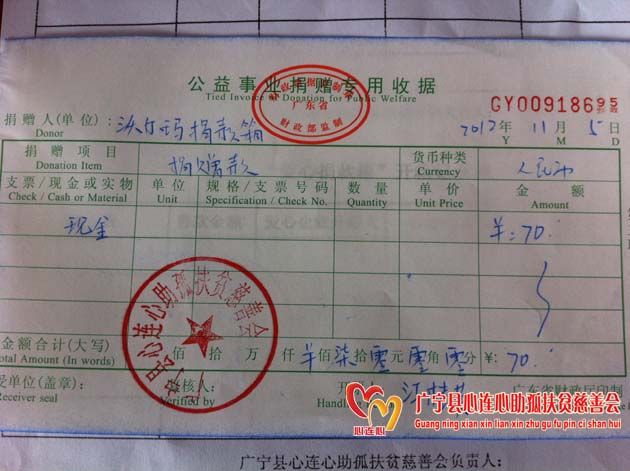 公益事业捐赠专用收据
Tied Invoice of Donation for Public Welfare
广东省
财政部监制
GY00918695
捐赠人(单位):沃尔玛捐款箱
Donor
2012年 11月 5日
Y M D
捐赠项目 捐赠款 货币种类 人民币
Donation Item Currency
支票/现金或实物 单位 规格/支票号码 数量 单价 金额
Check / Cash or Material Unit Specification / Check No. Quantity Unit Price Amount
现金 ¥:70
金额合计(大写) 佰 拾 万 仟 柒拾零元零角零 ¥:70
Total Amount (In words)
受单位(盖章): 核人: 开
Receiver seal Verified by Handling
广东省财政厅印制
县心连心助孤扶贫慈善会
心连心
广宁县心连心助孤扶贫慈善会
Guang ning xian xin lian xin zhu gu fu pin ci shan hui
广宁县心连心助孤扶贫慈善会负责人: